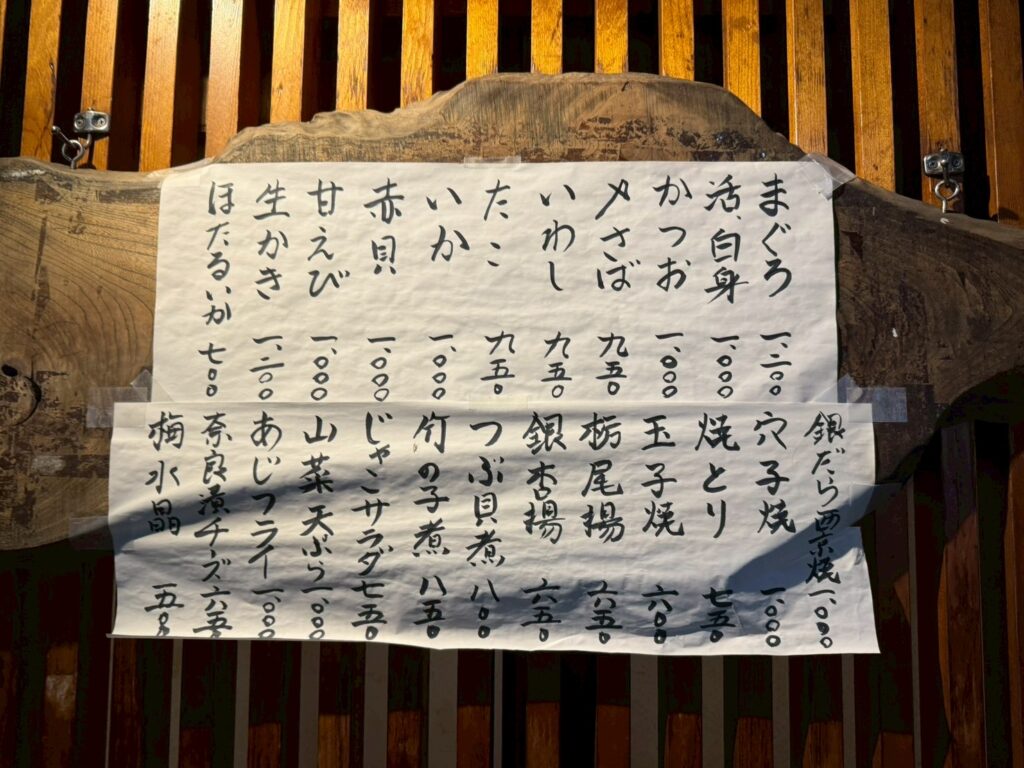 まぐろ 一、二〇〇
活、白身 一、〇〇〇
かつお 一、〇〇〇
〆さば 九五〇
いわし 九五〇
たこ 九五〇
いか 一、〇〇〇
赤貝 一、〇〇〇
甘えび 一、〇〇〇
生かき 一、二〇〇
ほたるいか 七〇〇
銀だら西京焼 一、〇〇〇
穴子焼 一、〇〇〇
焼とり 七五〇
玉子焼 六〇〇
栃尾揚 六五〇
銀杏揚 六五〇
つぶ貝煮 八〇〇
竹の子煮 八五〇
じゃこサラダ 七五〇
山菜天ぷら 一、〇〇〇
あじフライ 一、〇〇〇
奈良漬チーズ 六五〇
梅水晶